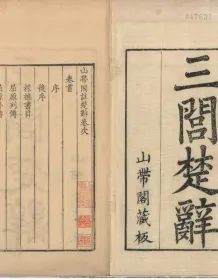 三閭楚辭
山帶閣藏板
山帶閣註楚辭卷次
卷首
序
後序
採摭書目
屈原列傳